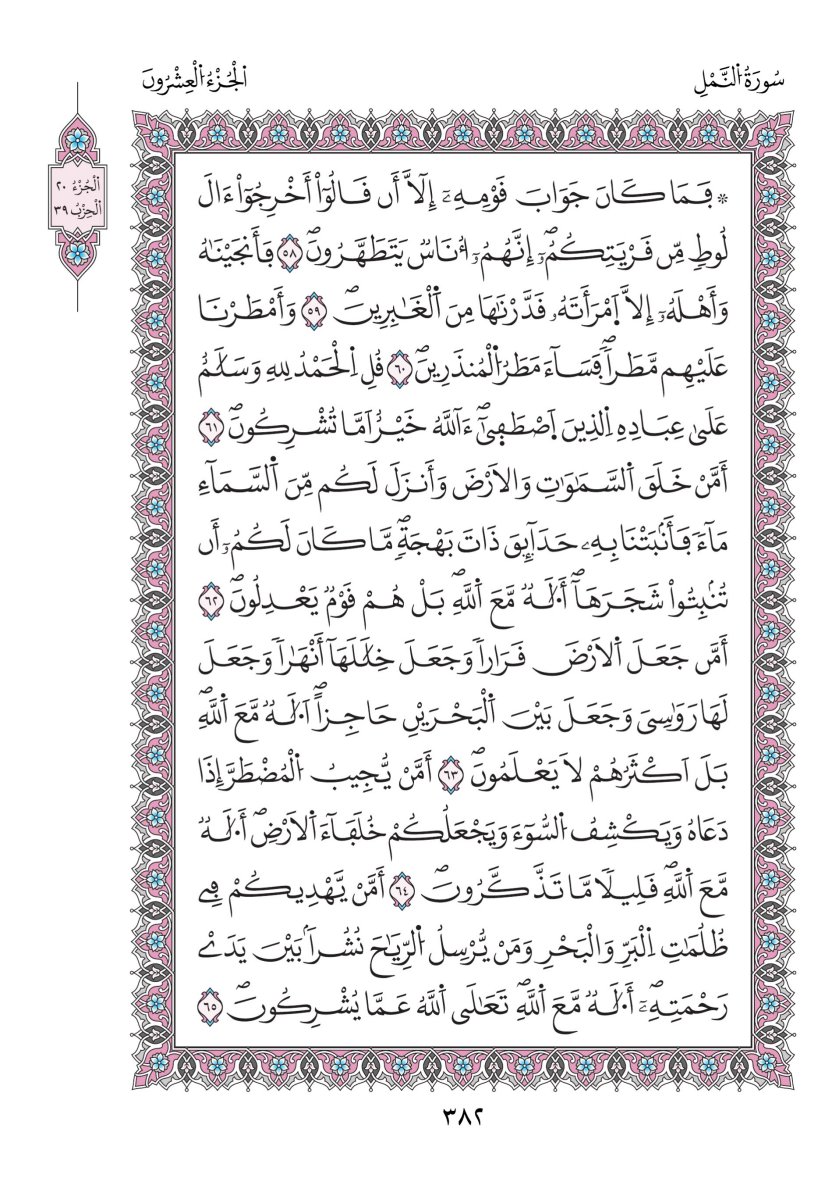 سُورَةُ اُ۬لنَّمْلِ
اَ۬لْجُزْءُ اُ۬لْعِشْرُونَ
اَ۬لْجُزْءُ ٢٠
اَ۬لْحِزْبُ ٣٩
* فَمَا كَانَ جَوَابَ قَوْمِهِۦٓ إِلَّآ أَن قَالُوٓاْ أَخْرِجُوٓاْ ءَالَ
لُوطٖ مِّن قَرْيَتِكُمُۥٓۖ إِنَّهُمُۥٓ أُنَاسٞ يَتَطَهَّرُونَۖ ٥٨ فَأَنجَيْنَٰهُ
وَأَهْلَهُۥٓ إِلَّا اَ۪مْرَأَتَهُۥ قَدَّرْنَٰهَا مِنَ اَ۬لْغَٰبِرِينَۖ ٥٩ وَأَمْطَرْنَا
عَلَيْهِم مَّطَراٗۖ فَسَآءَ مَطَرُ اُ۬لْمُنذَرِينَۖ ٦٠ قُلِ اِ۬لْحَمْدُ لِلهِ وَسَلَٰمٌ
عَلَىٰ عِبَادِهِ اِ۬لذِينَ اَ۪صْطَف۪ىٰٓۖ ءَآللَّهُ خَيْرٌ اَمَّا تُشْرِكُونَۖ ٦١
أَمَّنْ خَلَقَ اَ۬لسَّمَٰوَٰتِ وَالَارْضَ وَأَنزَلَ لَكُم مِّنَ اَ۬لسَّمَآءِ
مَآءٗ فَأَنۢبَتْنَا بِهِۦ حَدَآئِقَ ذَاتَ بَهْجَةٖۖ مَّا كَانَ لَكُمُۥٓ أَن
تُنۢبِتُواْ شَجَرَهَآۖ أَ۟لَٰهٞ مَّعَ اَ۬للَّهِۖ بَلْ هُمْ قَوْمٞ يَعْدِلُونَۖ ٦٢
أَمَّن جَعَلَ اَ۬لَارْضَ قَرَاراٗ وَجَعَلَ خِلَٰلَهَآ أَنْهَٰراٗ وَجَعَلَ
لَهَا رَوَٰسِىَ وَجَعَلَ بَيْنَ اَ۬لْبَحْرَيْنِ حَاجِزاًۖ اَ۟لَٰهٞ مَّعَ اَ۬للَّهِۖ
بَلَ اَكْثَرُهُمْ لَا يَعْلَمُونَۖ ٦٣ أَمَّنْ يُّجِيبُ اُ۬لْمُضْطَرَّ إِذَا
دَعَاهُ وَيَكْشِفُ اُ۬لسُّوٓءَ وَيَجْعَلُكُمْ خُلَفَآءَ اَ۬لَارْضِۖ أَ۟لَٰهٞ
مَّعَ اَ۬للَّهِۖ قَلِيلاٗ مَّا تَذَّكَّرُونَۖ ٦٤ أَمَّنْ يَّهْدِيكُمْ فِے
ظُلُمَٰتِ اِ۬لْبَرِّ وَالْبَحْرِ وَمَنْ يُّرْسِلُ اُ۬لرِّيَٰحَ نُشُراَۢ بَيْنَ يَدَےْ
رَحْمَتِهِۦٓۖ أَ۟لَٰهٞ مَّعَ اَ۬للَّهِۖ تَعَٰلَى اَ۬للَّهُ عَمَّا يُشْرِكُونَۖ ٦٥
٣٨٢